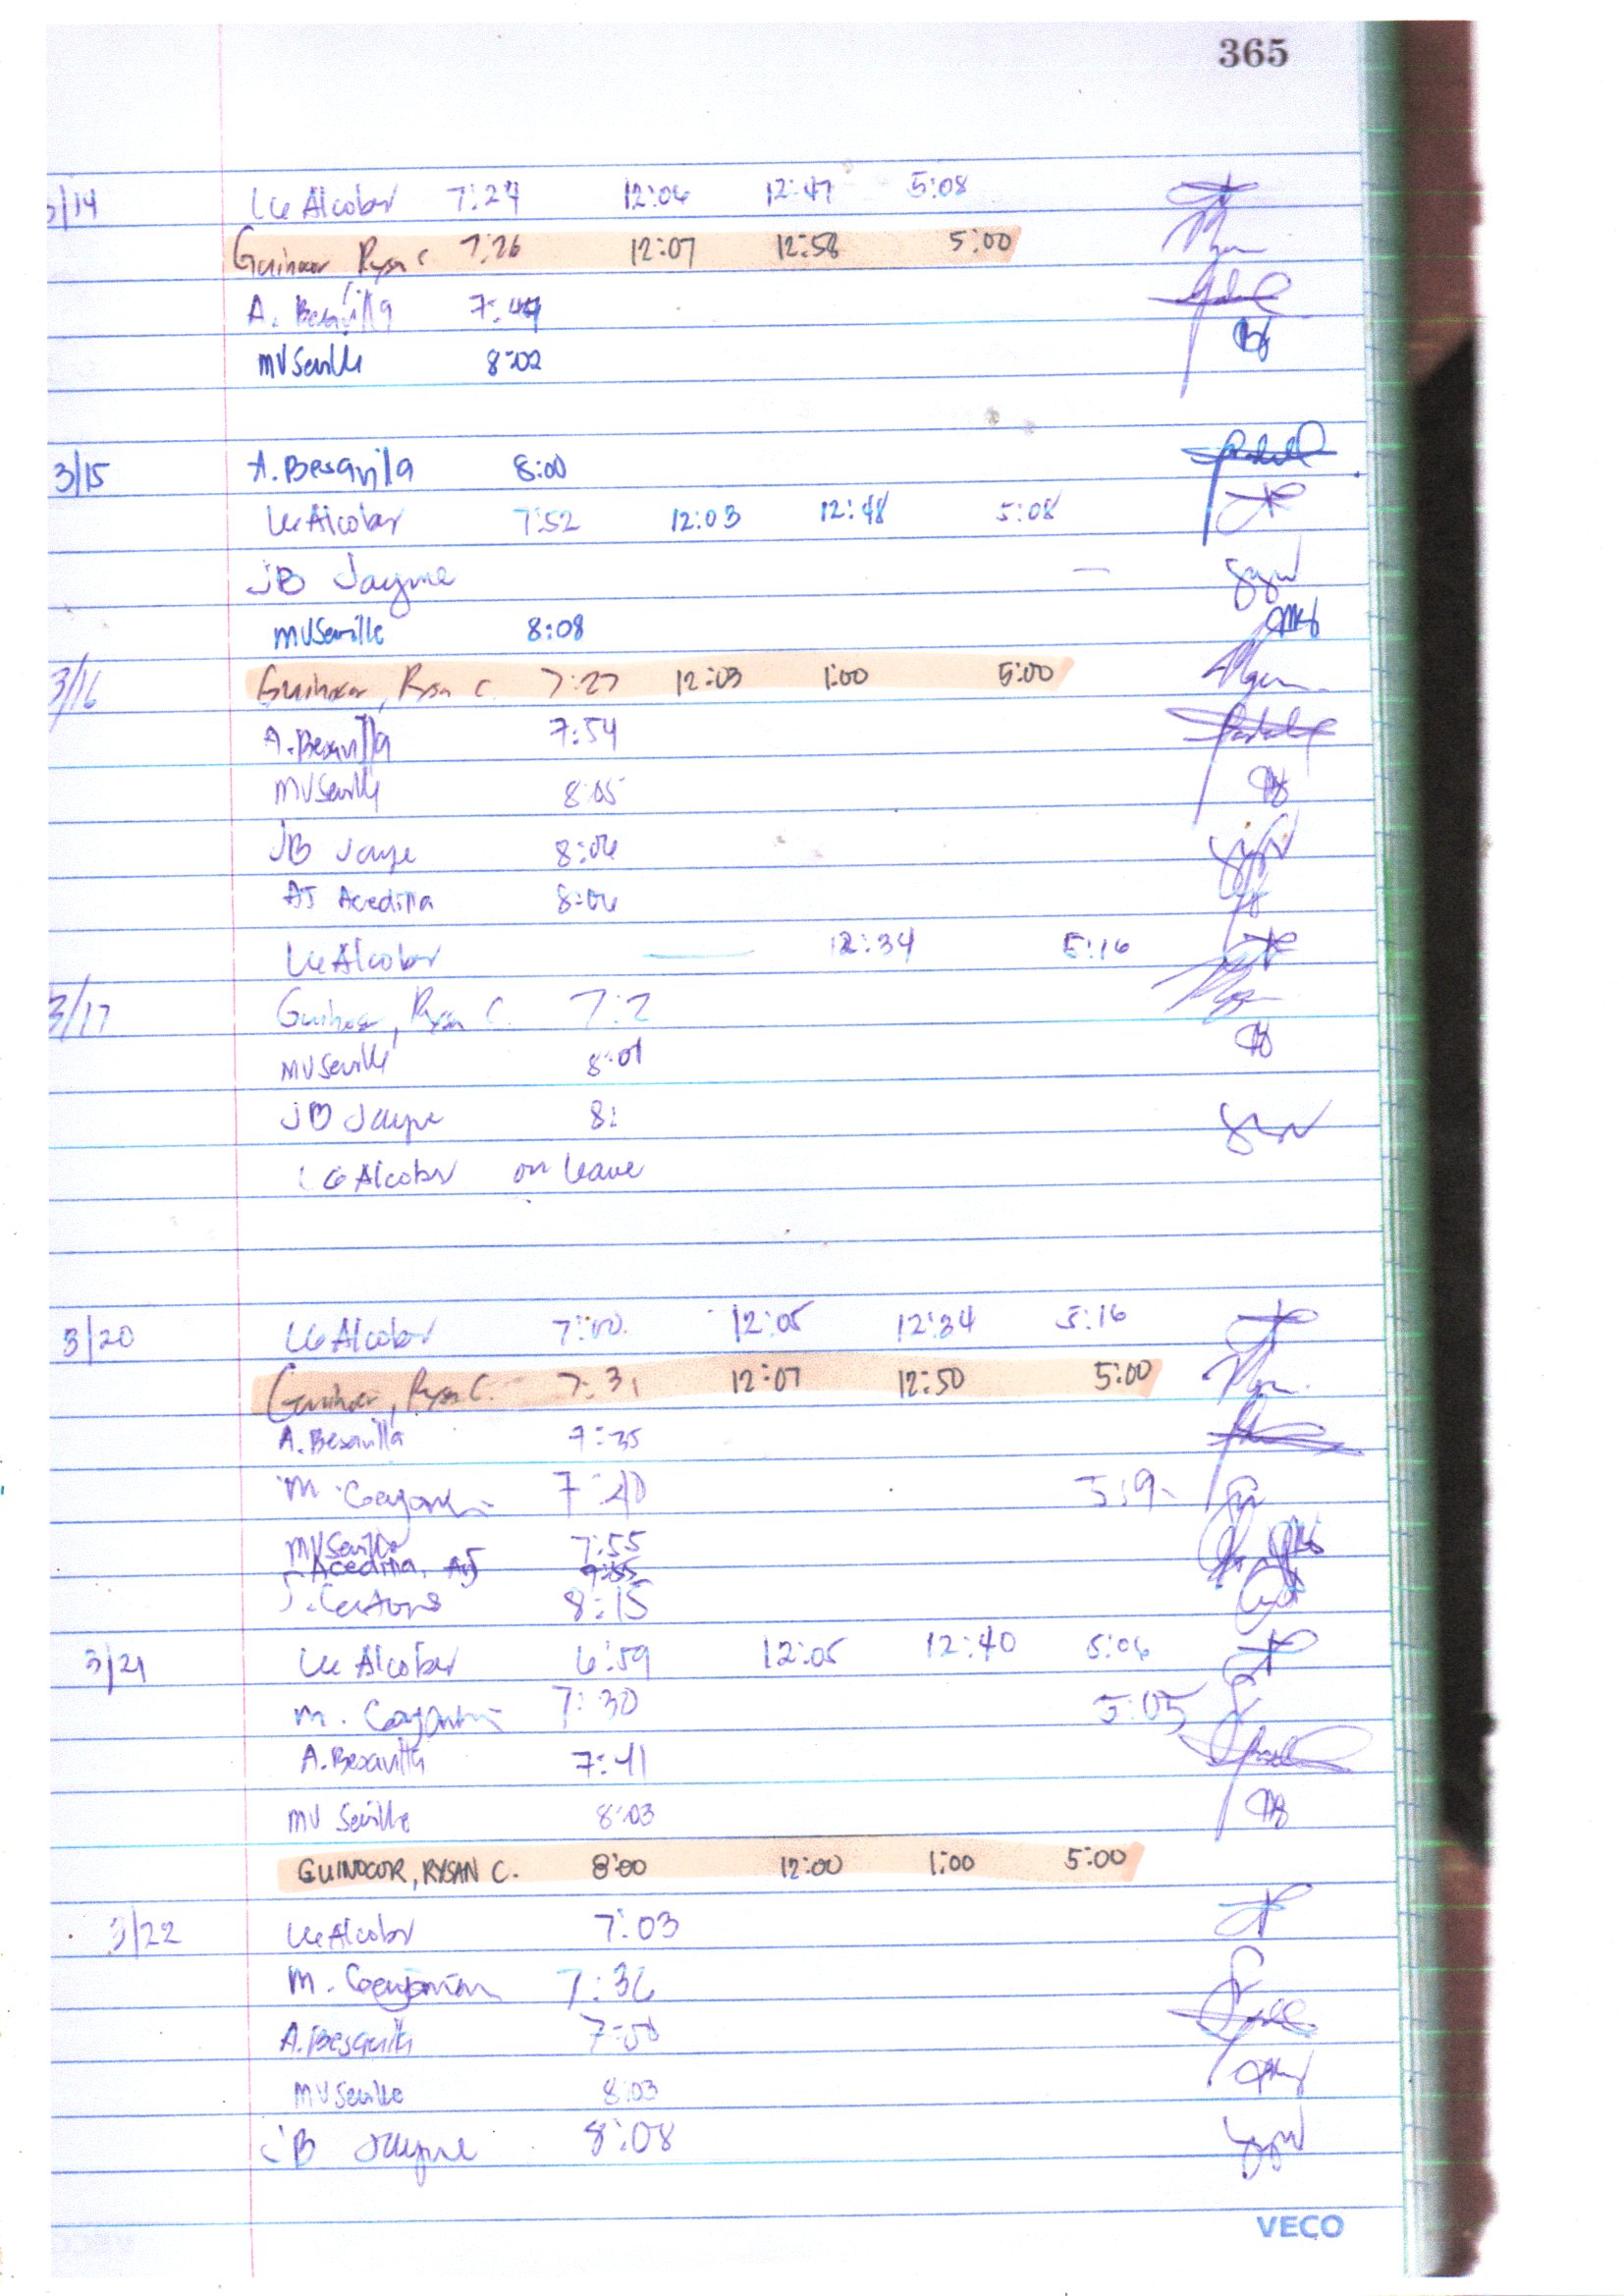 365
3/14 LG Alcober 7:27 12:06 12:47 5:08
Guinocor Rysan C 7:26 12:07 12:58 5:00
A. Besavilla 7:44
MV Seville 8:02
3/15 A. Besavilla 8:00
LG Alcober 7:52 12:03 12:48 5:08
JB Jayme —
MV Seville 8:08
3/16 Guinocor, Rysan C. 7:27 12:03 1:00 5:00
A. Besavilla 7:54
MV Seville 8:05
JB Jayme 8:06
AJ Acedilla 8:06
LG Alcober — 12:34 5:16
3/17 Guinocor, Rysan C. 7:2
MV Seville 8:01
JB Jayme 8:
LG Alcober on leave
3/20 LG Alcober 7:10 12:05 12:34 5:16
Guinocor, Rysan C. 7:31 12:07 12:50 5:00
A. Besavilla 7:35
M. 7:40 5:19
MV Seville 7:55
Acedilla, AJ 7:55
J. 8:15
3/21 LG Alcober 6:59 12:05 12:40 5:06
M. 7:30 5:05
A. Besavilla 7:41
MV Seville 8:03
GUINOCOR, RYSAN C. 8:00 12:00 1:00 5:00
3/22 LG Alcober 7:03
M. 7:36
A. Besavilla 7:58
MV Seville 8:03
JB Jayme 8:08
VECO